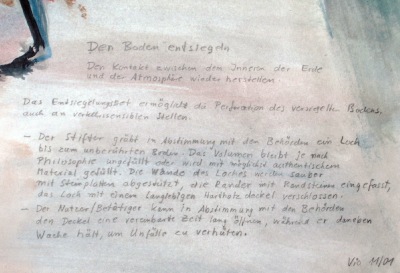 Den Boden entsiegeln
Den Kontakt zwischen dem Inneren der Erde
und der Atmosphäre wieder herstellen.
Das Entsiegelungsset ermöglicht die Perforation des versiegelten Bodens,
auch an verkehrssensiblen Stellen.
- Der Stifter gräbt in Abstimmung mit den Behörden ein Loch
bis zum unberührten Boden. Das Volumen bleibt je nach
Philosophie ungefüllt oder wird mit möglichst authentischem
Material gefüllt. Die Wände des Loches werden sauber
mit Steinplatten abgestützt, die Ränder mit Randsteinen eingefasst,
das Loch mit einem langlebigen Hartholz deckel verschlossen.
- Der Nutzer/Betätiger kann in Abstimmung mit den Behörden
den Deckel eine vereinbarte Zeit lang öffnen, während er daneben
Wache hält, um Unfälle zu verhüten.
11/01